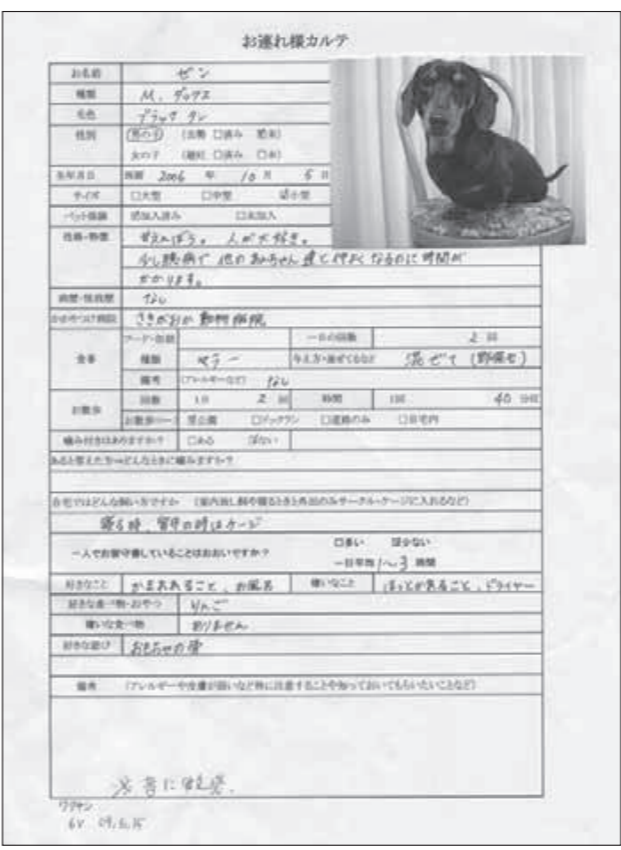 お連れ様カルテ
お名前 ゼン
種類 M. ダックス
毛色 ブラック タン
性別 男の子 (去勢 □済み ☑未)
女の子 (避妊 □済み □未)
生年月日 西暦 2006 年 10 月 5 日
サイズ □大型 □中型 ☑小型
ペット保険 ☑加入済み □未加入
性格・特徴 甘えんぼう。人が大好き。
少し臆病で 他の わんちゃん 達と仲よくなるのに時間が
かかります。
病歴・怪我歴 なし
かかりつけ病院 動物病院
食事 フード・缶詰 一日の回数 2 回
種類 与え方・混ぜてるなど 混ぜて (野菜も)
備考 (アレルギーなど) なし
お散歩 回数 1日 2 回 時間 1回 40 分位
お散歩コース ☑公園 □ドッグラン □道路のみ □自宅内
噛み付きはありますか? □ある ☑ない
あると答えた方⇒どんなときに噛みますか?
自宅ではどんな飼い方ですか (室内放し飼や寝るときと外出のみサークル・ケージに入れるなど)
寝る時、留守の時はケージ
一人でお留守番していることはおおいですか? □多い ☑少ない
一日平均 1〜3 時間
好きなこと かまわれること、お風呂 嫌いなこと ほっとかれること、ドライヤー
好きな食べ物・おやつ りんご
嫌いな食べ物 ありません
好きな遊び おもちゃの
備考 (アレルギーや皮膚が弱いなど特に注意することや知っておいてもらいたいことなど)
※ 音に敏感.
ワクチン
6V 09.